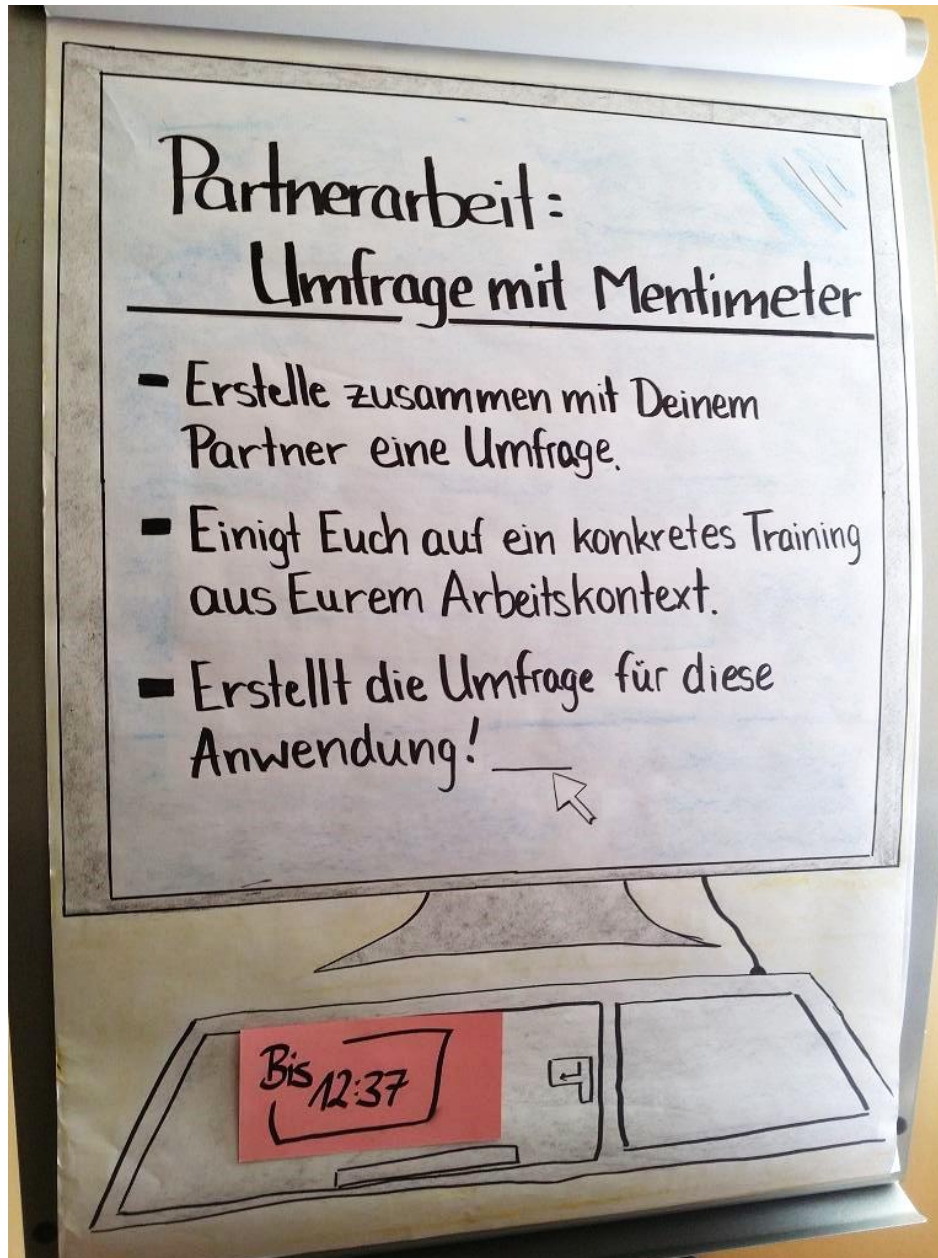 Partnerarbeit:
Umfrage mit Mentimeter
- Erstelle zusammen mit Deinem
Partner eine Umfrage.
- Einigt Euch auf ein konkretes Training
aus Eurem Arbeitskontext.
- Erstellt die Umfrage für diese
Anwendung! ___
Bis
12:37